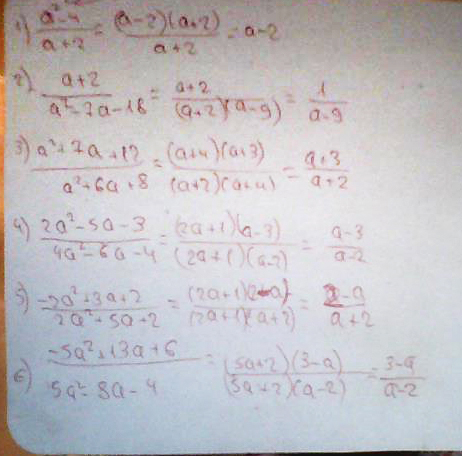 1) (a²-4)/(a+2) = ((a-2)(a+2))/(a+2) = a-2
2) (a+2)/(a²-7a-18) = (a+2)/((a+2)(a-9)) = 1/(a-9)
3) (a²+7a+12)/(a²+6a+8) = ((a+4)(a+3))/((a+2)(a+4)) = (a+3)/(a+2)
4) (2a²-5a-3)/(4a²-6a-4) = ((2a+1)(a-3))/((2a+1)(a-2)) = (a-3)/(a-2)
5) (-2a²+3a+2)/(2a²+5a+2) = ((2a+1)(2-a))/((2a+1)(a+2)) = (2-a)/(a+2)
6) (-5a²+13a+6)/(5a²-8a-4) = ((5a+2)(3-a))/((5a+2)(a-2)) = (3-a)/(a-2)